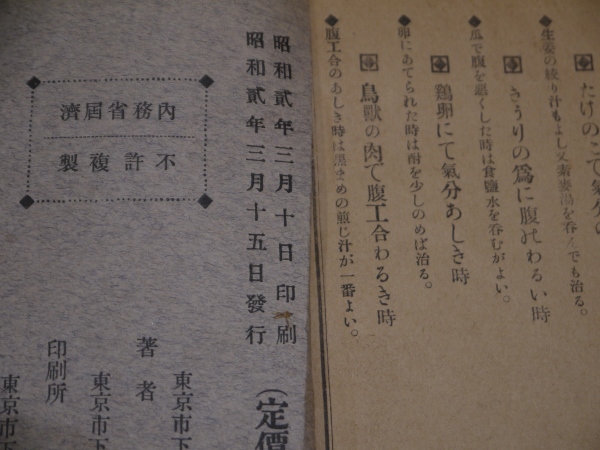 たけのこで氣分の
◆生姜の絞り汁もよし又蕎麥湯を呑んでも治る。
きうりの爲に腹のわるい時
◆瓜で腹を惡くした時は食鹽水を呑むがよい。
鷄卵にて氣分あしき時
◆卵にあてられた時は酢を少しのめば治る。
鳥獸の肉で腹工合わるき時
◆腹工合のあしき時は黑まめの煎じ汁が一番よい。
昭和貳年三月十日印刷
昭和貳年三月十五日發行
內務省屆濟
不許複製
(定價
東京市下
著者
東京市下
印刷所
東京市下